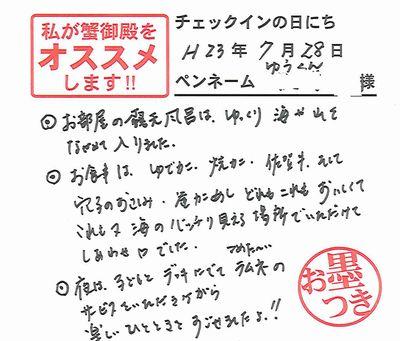 私が蟹御殿を
オススメ
します!!
チェックインの日にち
H23年7月28日
ゆうくん
ペンネーム 様
◎お部屋の露天風呂は、ゆっくり海や山を
ながめて入りました。
◎お食事は、ゆでガニ、焼ガニ、佐賀牛、そして
穴子のおこみ、釜めし どれもこれもおいしくて
これも又海のバッチリ見える場所でいただけて
しあわせ でした。 つめたーい
◎夜は、子どもとデッキにでてラムネの
サービスをいただきながら
楽しいひとときをすごせましたよ!!
お墨つき